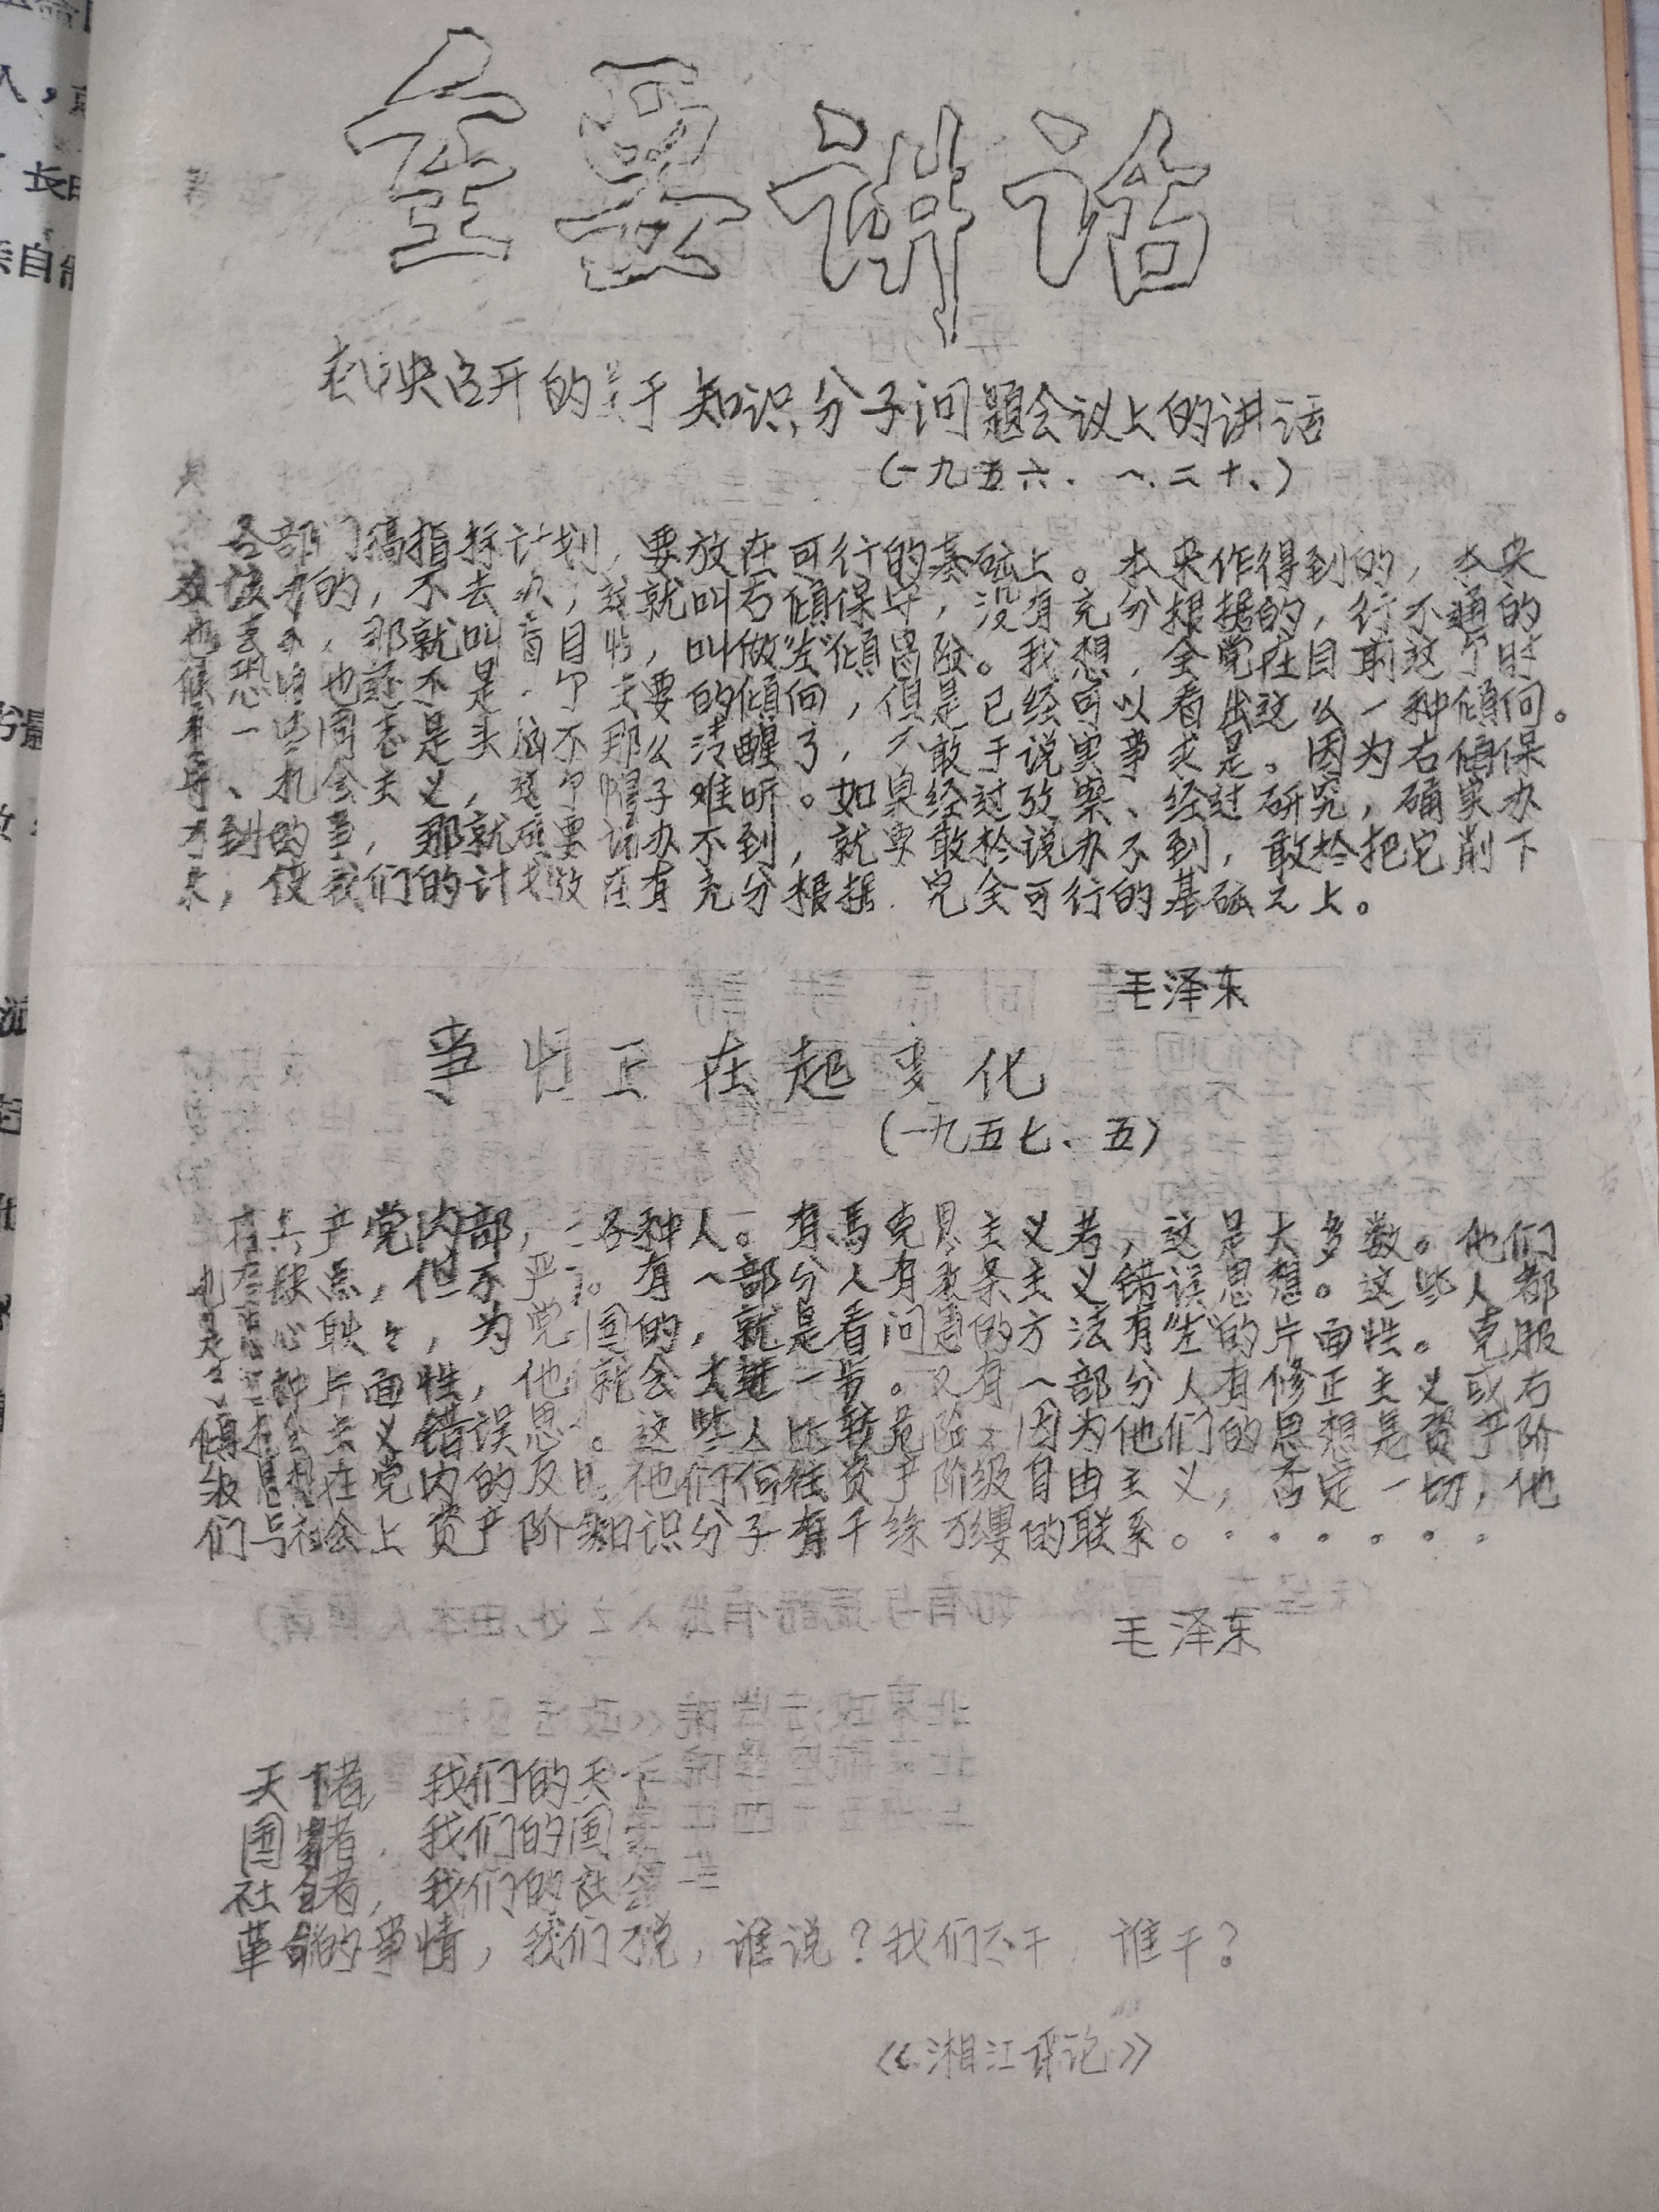 全要讲话
在中央召开的关于知识分子问题会议上的讲话
(一九五六、一、二十、)
各部门搞指标计划,要放在可行的基础上。本来作得到的,本来
应该办的,不去办,这就叫右倾保守,没有充分根据的,行不通的
也去办,那就叫盲目性,叫做“左”倾冒险。我想,全党在目前这个时
候恐怕也还不是一个主要的倾向,但是已经可以看出这么一种倾向。
有一些同志是头脑不那么清醒了,不敢于说实事求是。因为右倾保
守、机会主义,这个帽子难听。如果经过改案、经过研究,确实办
不到的事,那就要说办不到,就要敢於说办不到,敢於把它削下
来,使我们的计划放在有充分根据 完全可行的基础之上。
毛泽东
事情正在起变化
(一九五七、五)
在共产党内部,各种人。有馬克思主义者,这是大多数。他们
也有缺点,但不严重。有一部分人有教条主义错误思想。这些人都
是忠心耿々,为党为国的,就是看问题的方法有“左”的片面性。克服
了这种片面性,他们就会大进一步。又有一部分人有修正主义或右
倾机会主义错误思想。这些人比较危险,因为他们的思想是资产阶
级思想在党内的反映,他们向往资产阶级自由主义,否定一切,他
们与社会上资产阶级知识分子有千丝万缕的联系。······
毛泽东
天下者,我们的天下
国家者,我们的国家
社会者,我们的社会
革命的事情,我们不说,谁说?我们不干,谁干?
《湘江评论》